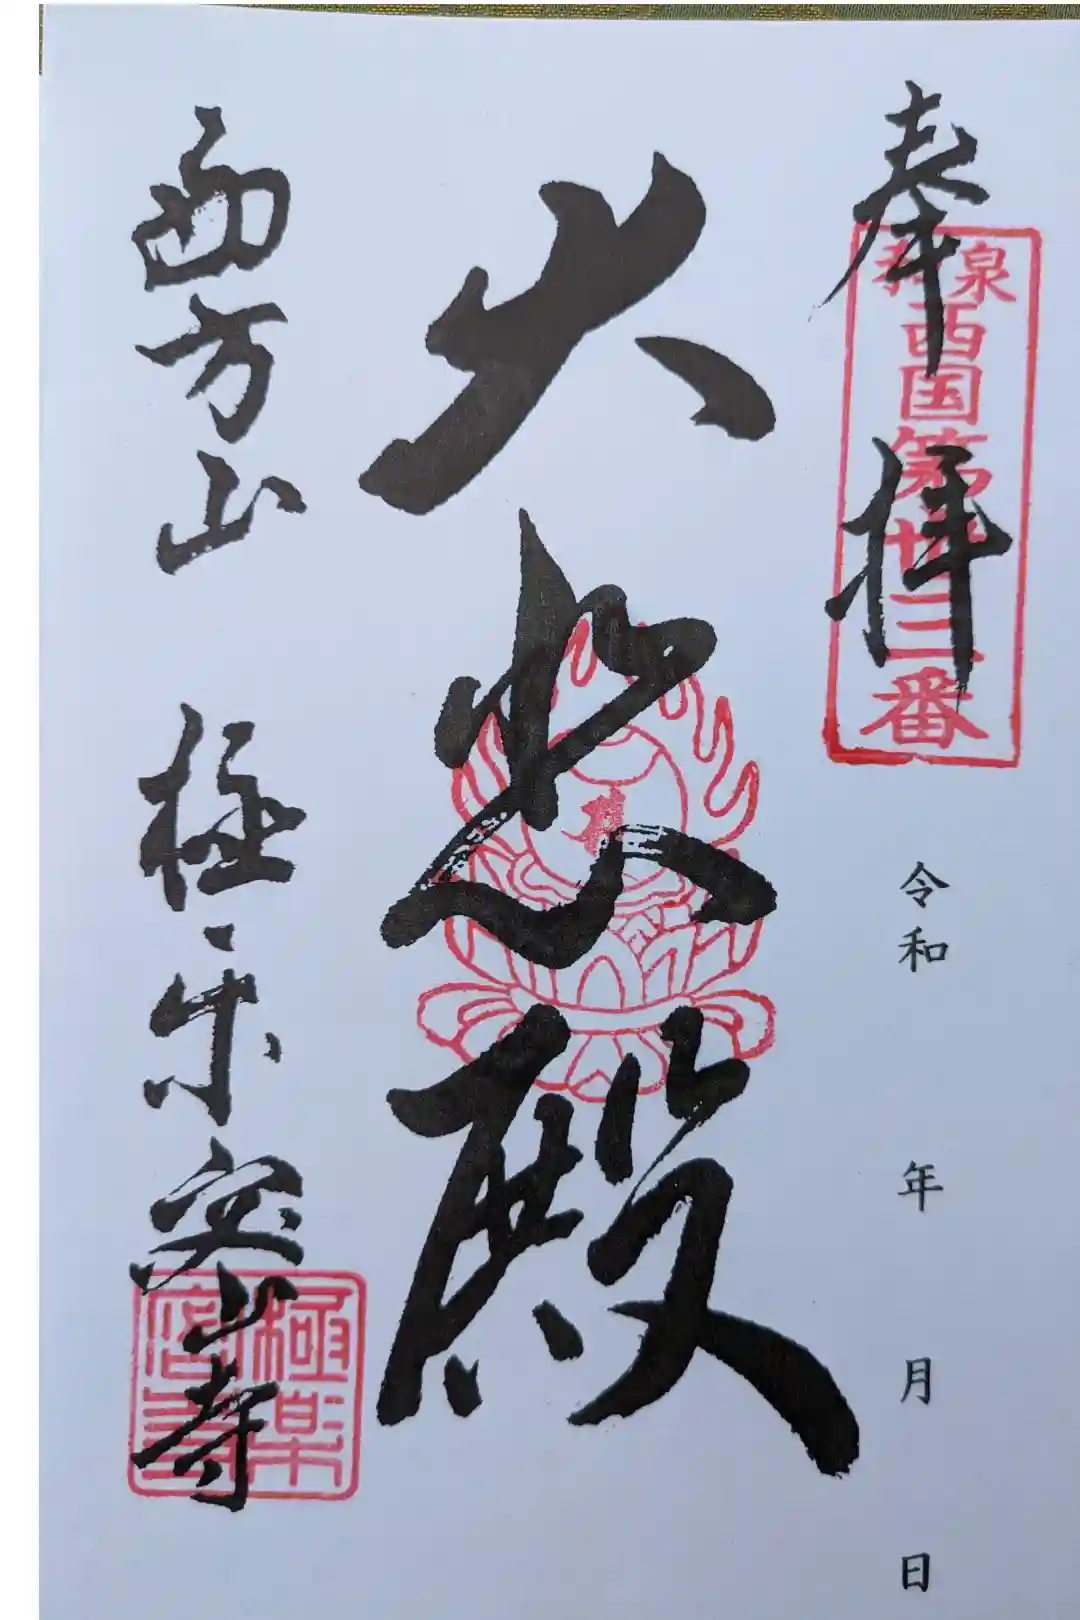 奉拝
和泉西国第廿三番
令和　年　月　日
大悲殿
西方山　極楽密寺
極楽密寺